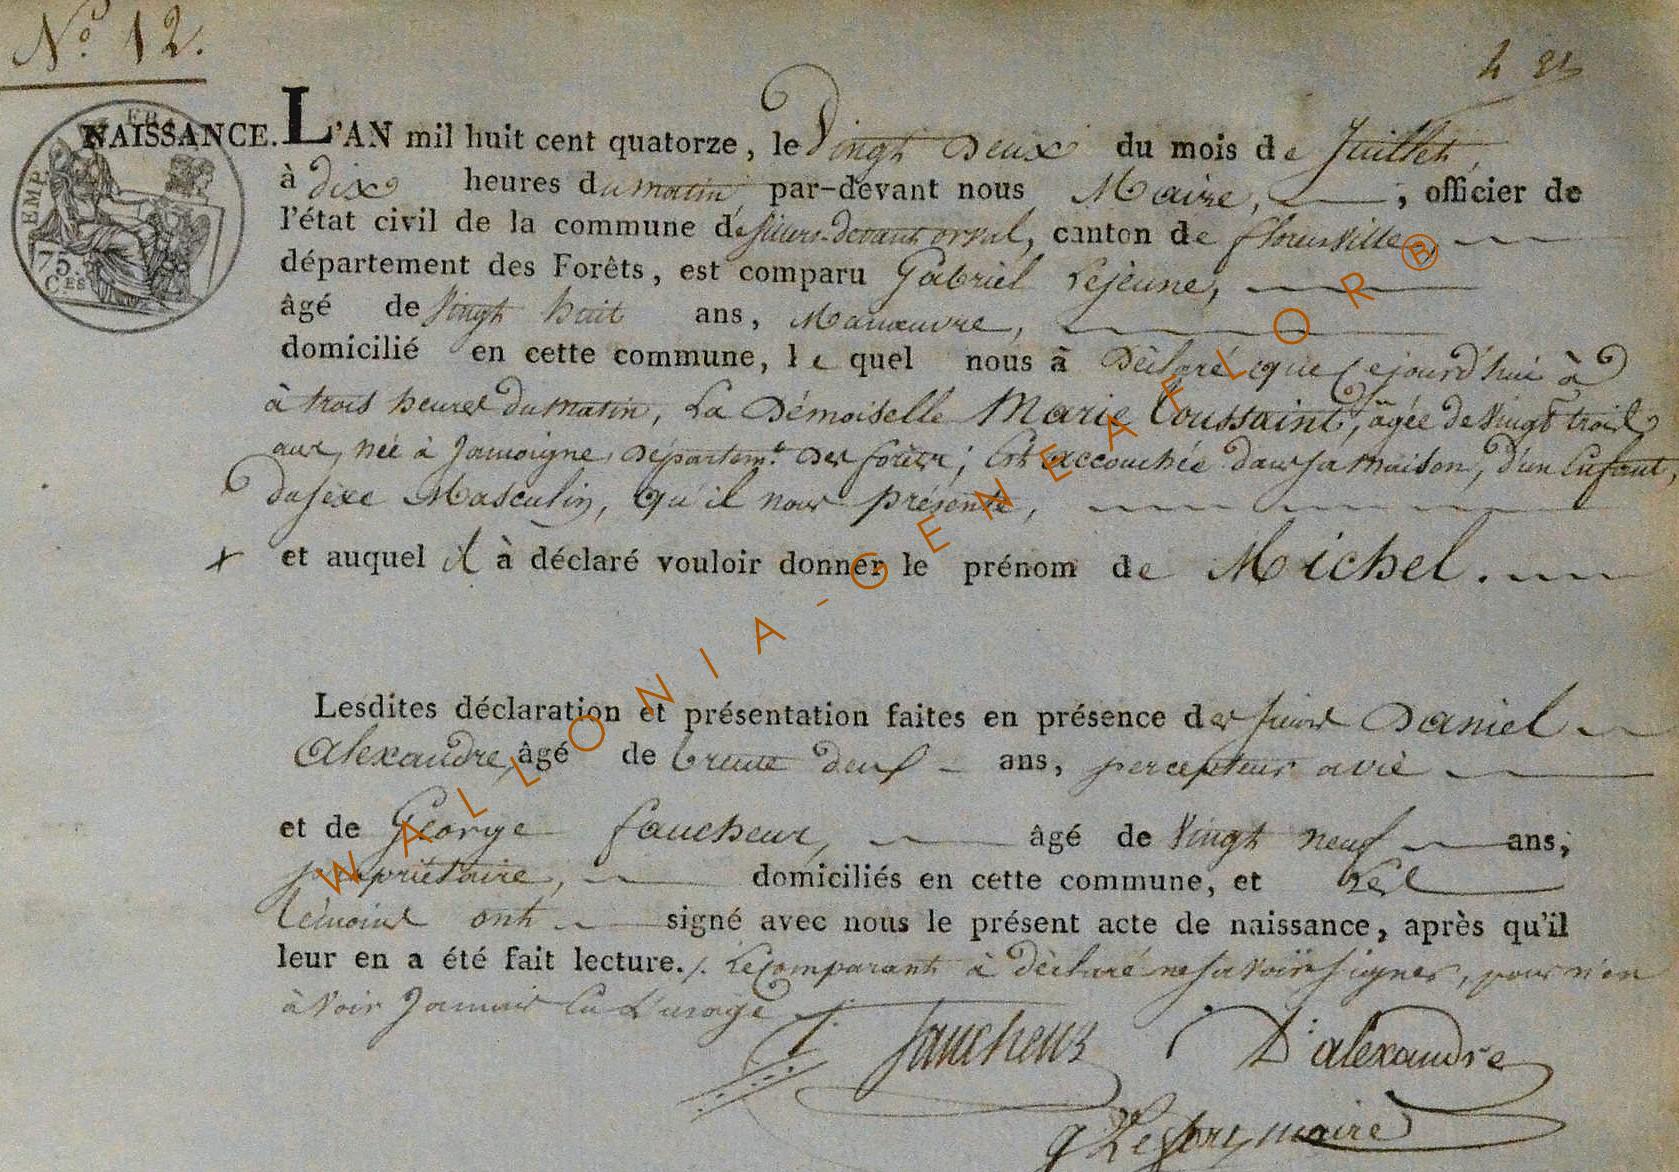 N.o 12.
NAISSANCE. L'AN mil huit cent quatorze, le Vingt Deux du mois de Juillet,
EMP
75.
CES
à dix heures du matin, par-devant nous Maire, officier de
l'état civil de la commune de Villers-devant orval, canton de florenville,
département des Forêts, est comparu Gabriel Lejeune,
âgé de Vingt huit ans, Manœuvre,
domicilié en cette commune, le quel nous à Déclaré que Cejourd'hui à
à trois heures du matin, La Démoiselle Marie Toussaint, âgée de Vingt trois
ans, née à Jamoigne, Départemt. Des forêts; Est accouchée dans sa maison, d'un Enfant,
du sèxe Masculin, qu'il nous présente,
et auquel il à déclaré vouloir donner le prénom de Michel.
Lesdites déclaration et présentation faites en présence des sieurs Daniel
Alexandre, âgé de trente deux ans, percepteur
et de George faucheur, âgé de Vingt neuf ans,
propriétaire, domiciliés en cette commune, et Les
témoins ont signé avec nous le présent acte de naissance, après qu'il
leur en a été fait lecture. Le comparant à déclaré ne savoir signer, pour n'en
àvoir Jamais Eu L'usage
faucheur D: alexandre
maire
WALLONIA-GENEAFLOR®